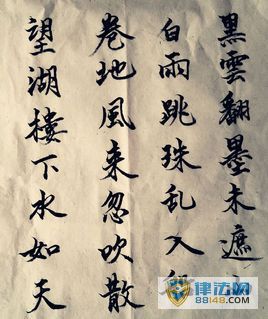 黑雲翻墨未遮
白雨跳珠乱入
卷地風来忽吹散
望湖樓下水如天
律法网
88148.com